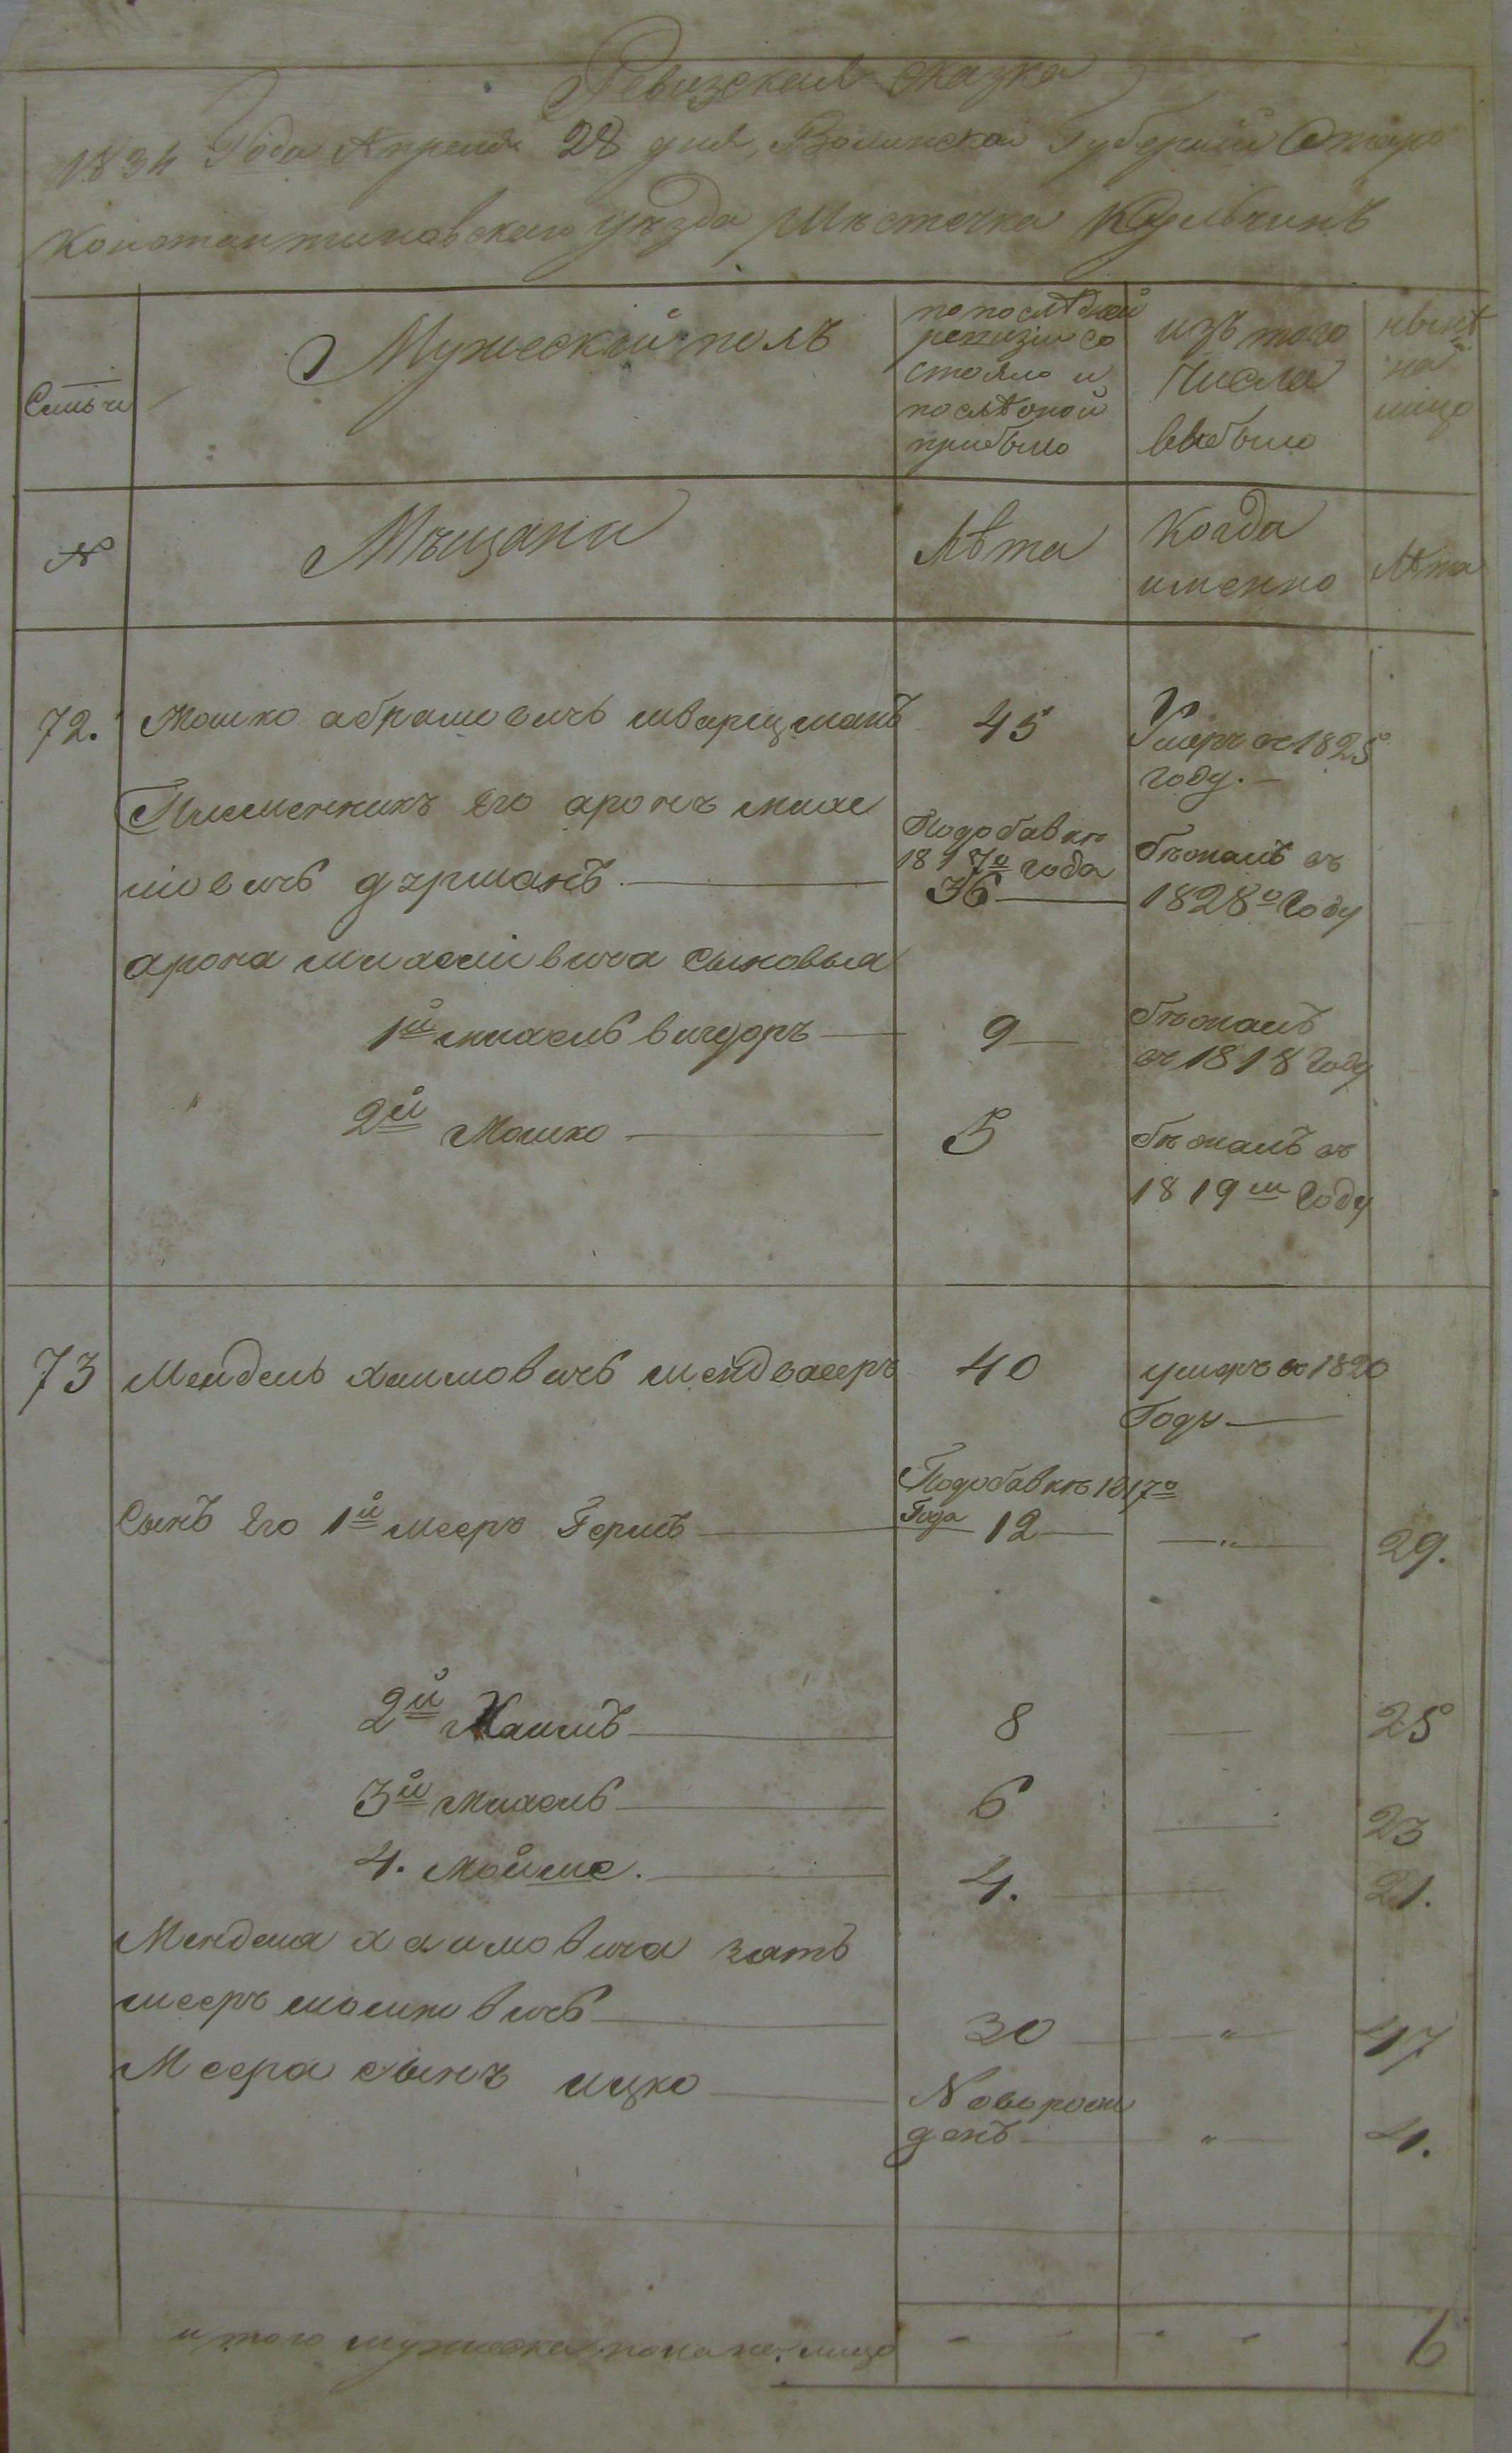 Ревизская сказка
1834 Года Апреля 28 дня, Волинской Губернии Старо
Константиновского уѣзда Мѣстечка Кульчинъ
Мужеский полъ
по послѣдней
ревизіи со
стояло и
послѣ оной
прибыло
изъ того
числа
выбыло
нынѣ
на
лицо
Семьи
№
Мѣщани
Лѣта
Когда
именно
Лѣта
72. Мошко абрамовичъ шварцманъ 45 Умеръ в 1825
году.
Племенникъ Его аронъ михе
Подобавкѣ
1817го года
бѣжалъ въ
левичъ дерманъ 36 1828о Году
арона михелівича сыновья
1й михель вигдоръ 9 бѣжалъ
въ 1818 Году
2й Мошко 5 бѣжалъ въ
1819м Году
73 Мендель хаимовичъ мендваееръ 40 умеръ в 1820
Году
Подобавкѣ 1817о
Года
Сынъ Его 1й мееръ Гершъ 12 — " — 29.
2й Хаимъ 8 — 25
3й михель 6 — 23
4. мойше. 4. — 21.
Менделя хаимовича зять
мееръ мошковичъ 30 — " — 47
Меера сынъ ицко Новорож
денъ — " — 4.
итого мужеска пола на лицо - - - - 6